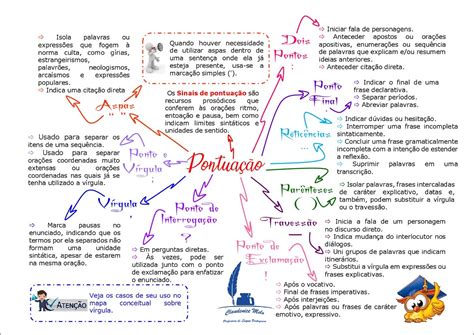 ⇨ Isola palavras ou
expressões que fogem à
norma culta, como gírias,
estrangeirismos,
palavrões, neologismos,
arcaísmos e expressões
populares.
⇨ Indica uma citação direta
Aspas
Quando houver necessidade
de utilizar aspas dentro de
uma sentença onde ela já
esteja presente, usa-se a
marcação simples (').
Os Sinais de pontuação são
recursos prosódicos que
conferem às orações ritmo,
entoação e pausa, bem como
indicam limites sintáticos e
unidades de sentido.
Dois
Pontos
:
⇨ Iniciar fala de personagens.
⇨ Anteceder apostos ou orações
apositivas, enumerações ou sequência
de palavras que explicam e/ou resumem
ideias anteriores.
⇨ Anteceder citação direta.
Ponto
Final
⇨ Indicar o final de uma
frase declarativa.
⇨ Separar períodos.
⇨ Abreviar palavras.
Reticências
...
⇨ Indicar dúvidas ou hesitação.
⇨ Interromper uma frase incompleta
sintaticamente.
⇨ Concluir uma frase gramaticalmente
incompleta com a intenção de estender
a reflexão.
⇨ Suprimir palavras em uma
transcrição.
Pontuação
⇨ Usado para separar os
itens de uma sequência.
⇨ Usado para separar
orações coordenadas muito
extensas ou orações
coordenadas nas quais já se
tenha utilizado a vírgula.
Ponto e
Vírgula
;
Parênteses
( )
⇨ Isolar palavras, frases intercaladas
de caráter explicativo, datas e,
também, podem substituir a vírgula
ou o travessão.
Vírgula
,
⇨ Marca pausas no
enunciado, indicando que os
termos por ela separados não
formam uma unidade
sintática, apesar de estarem
na mesma oração.
Ponto de
Interrogação
?
⇨ Em perguntas diretas.
⇨ Às vezes, pode ser
utilizada junto com o ponto
de exclamação para enfatizar
o enunciado.
Travessão
⇨ Inicia a fala de um personagem
no discurso direto.
⇨ Indica mudança do interlocutor nos
diálogos.
⇨ Um grupos de palavras que indicam
itinerários.
⇨ Substitui a vírgula em expressões ou
frases explicativas.
Ponto de
Exclamação
!
⇨ Após o vocativo.
⇨ Final de frases imperativas.
⇨ Após interjeições.
⇨ Após palavras ou frases de caráter
emotivo, expressivo.
ATENÇÃO
Veja os casos de seu uso no
mapa conceitual sobre
vírgula.
Claudenice Melo
Professora de Língua Portuguesa